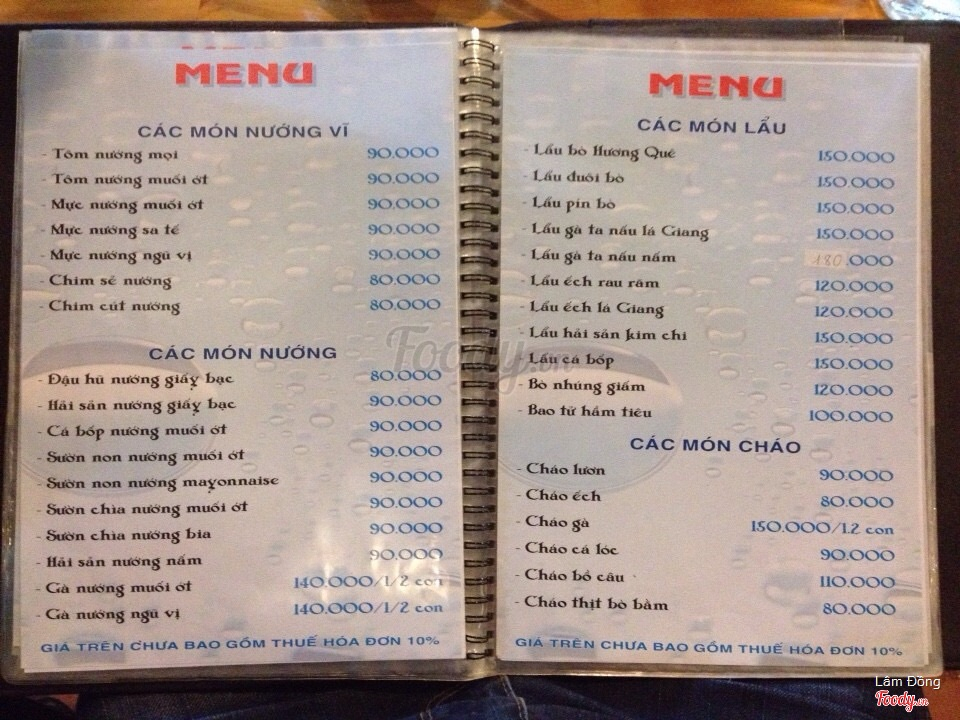 MENU
CÁC MÓN NƯỚNG VĨ
- Tôm nướng mọi 90.000
- Tôm nướng muối ớt 90.000
- Mực nướng muối ớt 90.000
- Mực nướng sa tế 90.000
- Mực nướng ngũ vị 90.000
- Chim sẻ nướng 80.000
- Chim cút nướng 80.000
CÁC MÓN NƯỚNG
- Đậu hũ nướng giấy bạc 80.000
- Hải sản nướng giấy bạc 90.000
- Cá bốp nướng muối ớt 90.000
- Sườn non nướng muối ớt 90.000
- Sườn non nướng mayonnaise 90.000
- Sườn chìa nướng muối ớt 90.000
- Sườn chìa nướng bia 90.000
- Hải sản nướng nấm 90.000
- Gà nướng muối ớt 140.000/1/2 con
- Gà nướng ngũ vị 140.000/1/2 con
GIÁ TRÊN CHƯA BAO GỒM THUẾ HÓA ĐƠN 10%
MENU
CÁC MÓN LẨU
- Lẩu bò Hương Quê 150.000
- Lẩu đuôi bò 150.000
- Lẩu pín bò 150.000
- Lẩu gà ta nấu lá Giang 150.000
- Lẩu gà ta nấu nấm 180.000
- Lẩu ếch rau răm 120.000
- Lẩu ếch lá Giang 120.000
- Lẩu hải sản kim chi 150.000
- Lẩu cá bốp 150.000
- Bò nhúng giấm 120.000
- Bao tử hầm tiêu 100.000
CÁC MÓN CHÁO
- Cháo lươn 90.000
- Cháo ếch 80.000
- Cháo gà 150.000/1.2 con
- Cháo cá lóc 90.000
- Cháo bồ câu 110.000
- Cháo thịt bò bằm 80.000
GIÁ TRÊN CHƯA BAO GỒM THUẾ HÓA ĐƠN 10%
Foody.vn
Lâm Đồng
Foody.vn